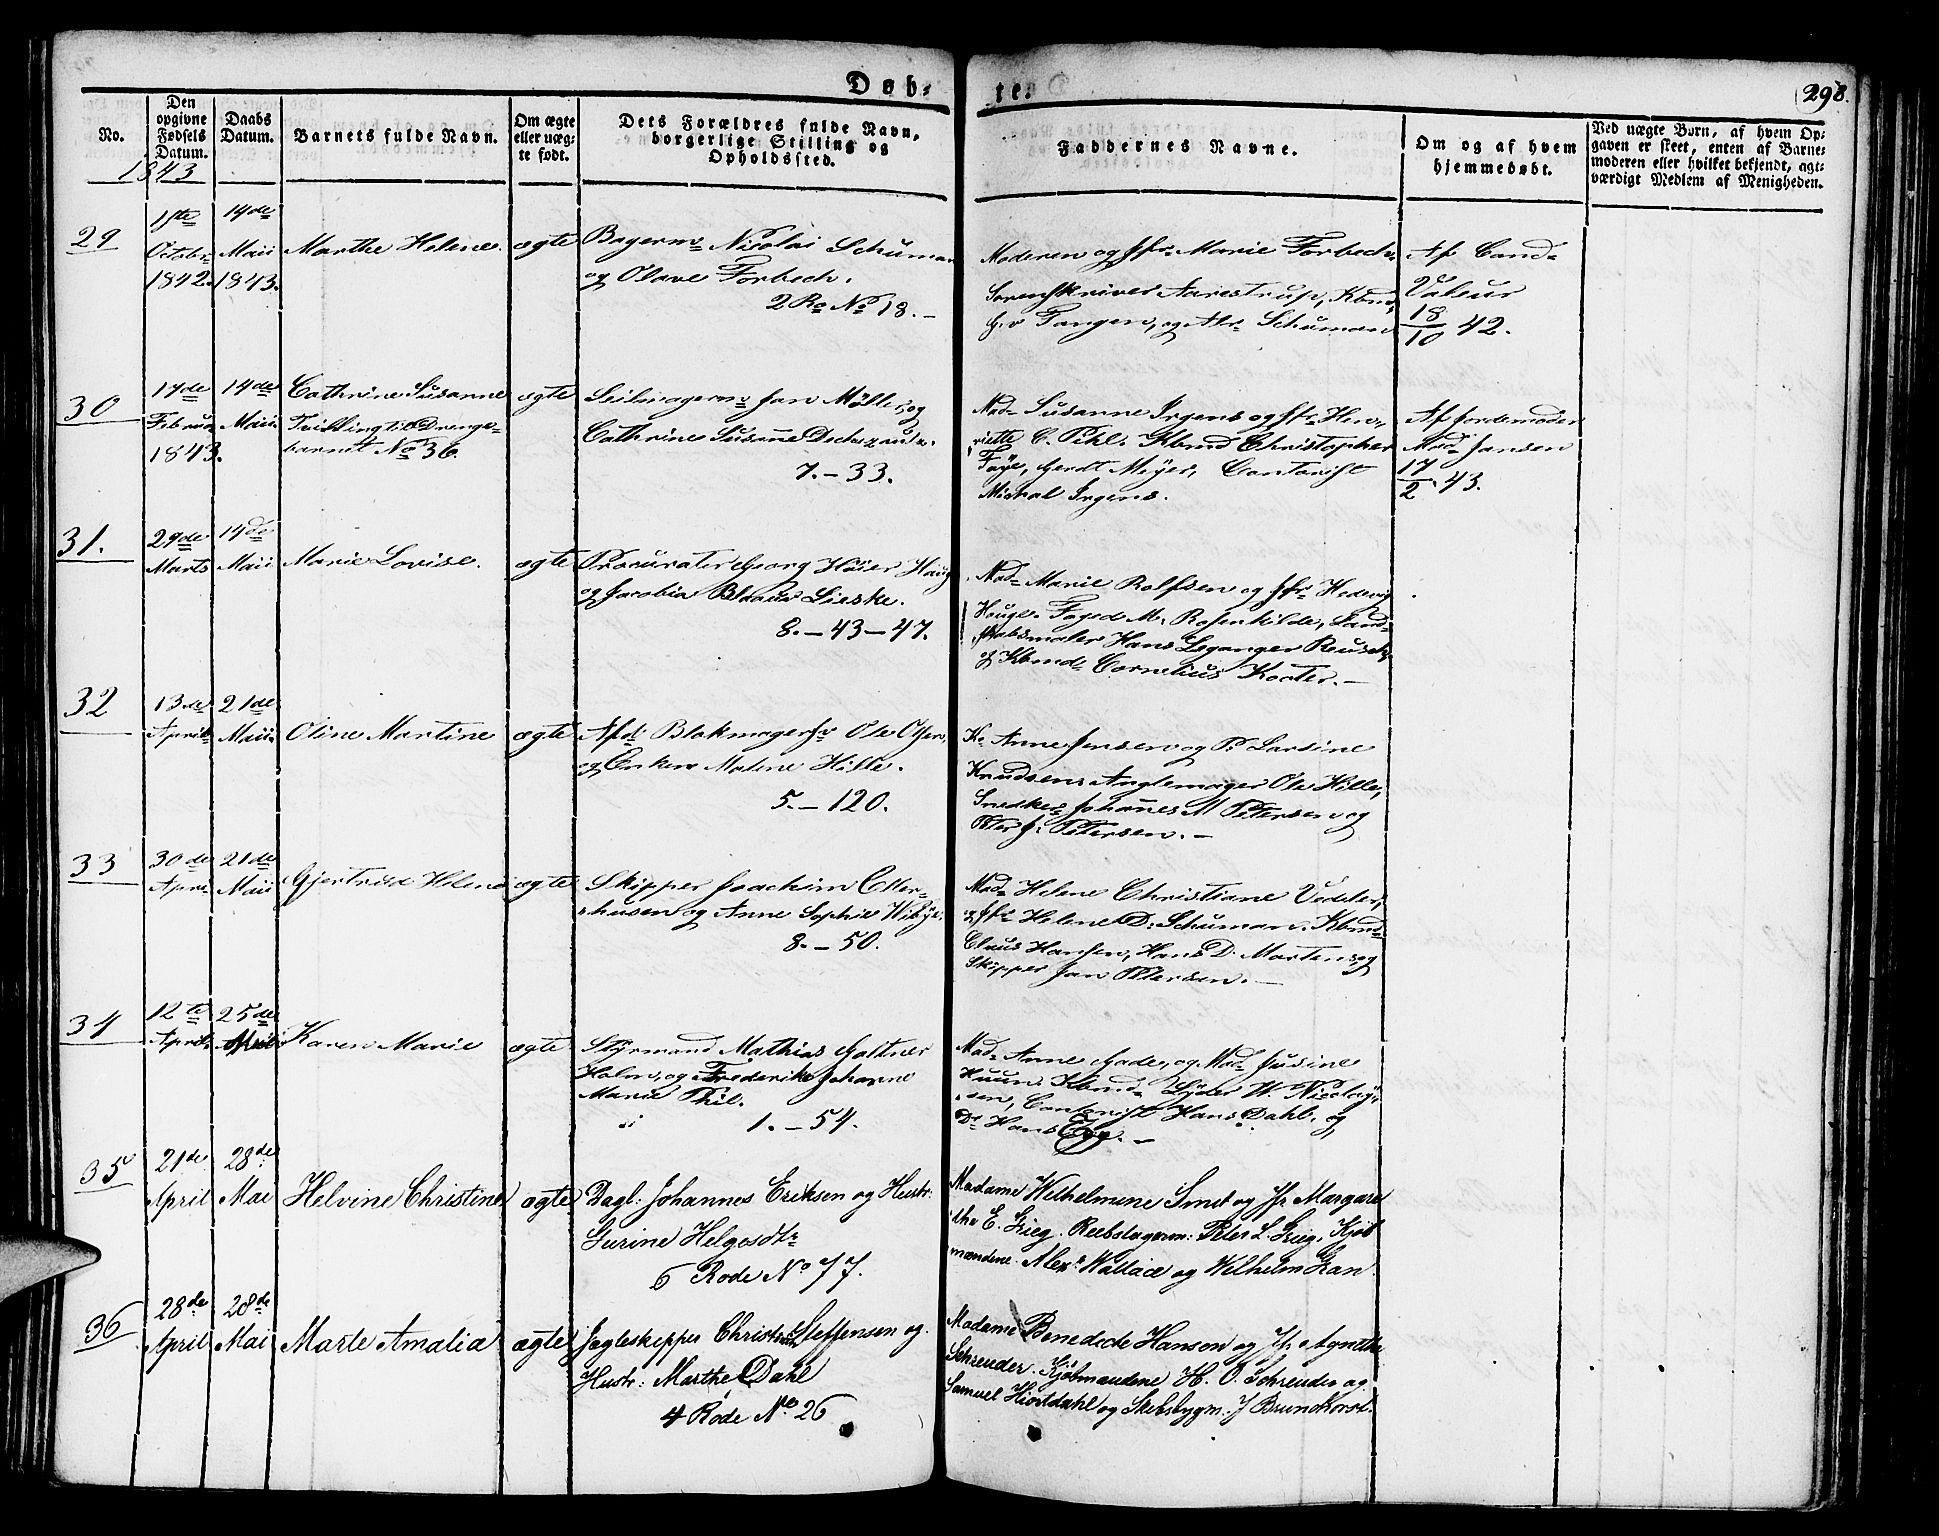 Døb-
te.
298.
No.
Den
opgivne
Fødsels
Datum.
Daabs
Datum.
Barnets fulde Navn.
Om ægte
eller uæg-
te født.
Dets Forældres fulde Navn,
borgerlige Stilling og
Opholdssted.
Faddernes Navne.
Om og af hvem
hjemmedøbt.
Ved uægte Børn, af hvem Op-
gaven er skeet, enten af Barne-
moderen eller hvilket bekjendt, agt-
værdigt Medlem af Menigheden.
1843
29
1ste
Octobr
1842.
14de
Maii
1843.
Marthe Helene.
ægte
Bagerm Nicolai Schuman
og Olave Forbech.
2 Ro No 18.
Moderen og Jfr Marie Forbech
Sorenskriver Aarestrup, Kbmd
Tangen, og Schuman
Af Cand
Valeur
18/10 42.
30
17de
Februar
1843.
14de
Maii
Cathrine Susanne
Tvillingtil Drenge-
barnet No 36.
ægte
Seilmagerm Jan Møller og
Cathrine Susanne
7. - 33.
Mad Susanne Irgens og Jfr Hen-
riette C. Pihl. Kbmd Christopher
Faye, Gerdt Meyer, Contorist
Michal Irgens.
Af Jordemoder
Mad Jansen
17/2 43.
31.
29de
Marts
14de
Maii
Marie Lovise.
ægte
Procurator Georg Høier Haug
og Jacobia Blaauw Lieske.
8. - 43 - 47.
Mad Marie Rolfsen og Jfr Hedevig
Houge. Foged M. Rosenkilde, Land-
skabsmaler Hans Leganger Reusch
og Kbmd Cornelius Koster.
32
13de
April
21de
Maii
Oline Martine
ægte
Afd Blokmagersv Ole Olsen
og Enken Malene Hille.
5. - 120.
K. Anne Jensen og P. Larsine
Knudsen. Anglemager Ole Hille,
Snedker Johannes M Petersen og
Peter J. Petersen.
33
30de
April
21de
Maii
Gjertrud Helene
ægte
Skipper Joachim Etter-
husen og Anne Sophie Wibye.
8. - 50.
Mad Helene Christiane Vedeler,
og Jfr Helene D. Schuman. Kbmd
Claus Hansen, Hans D. Martens og
Skipper Jan Petersen.
34
12te
April
25de
Maii
Karen Marie
ægte
Styrmand Mathias Holtner
Holm, og Frederikke Johanne
Marie Pihl.
1. - 54.
Mad Anne Gade, og Mad Jusine
Huun. Kbmd Lyder W. Nicolay-
sen, Contorist Hans Dahl. og
Do Hans Egg.
35
21de
April
28de
Mai
Helvine Christine
ægte
Dagl: Johannes Eriksen og Hustr:
Gurine Helgesdtr
6 Rode No 77.
Madame Wilhelmine Smit og Jfr Margare
the E. Grieg. Reebslagerm: Peter L. Grieg, Kjøb
mændene Alexr Wallace og Wilhelm Gran
36
28de
April
28de
Mai
Marte Amalia
ægte
Jagteskipper Christian Steffensen og
Hustr: Marthe Dahl
4 Rode No 26
Madame Benedicte Hanson og Jfr Agnethe
Schreuder. Kjøbmændene H. O. Schreuder og
Samuel Hiortdahl og Skibsbygm. J Brunchorst.